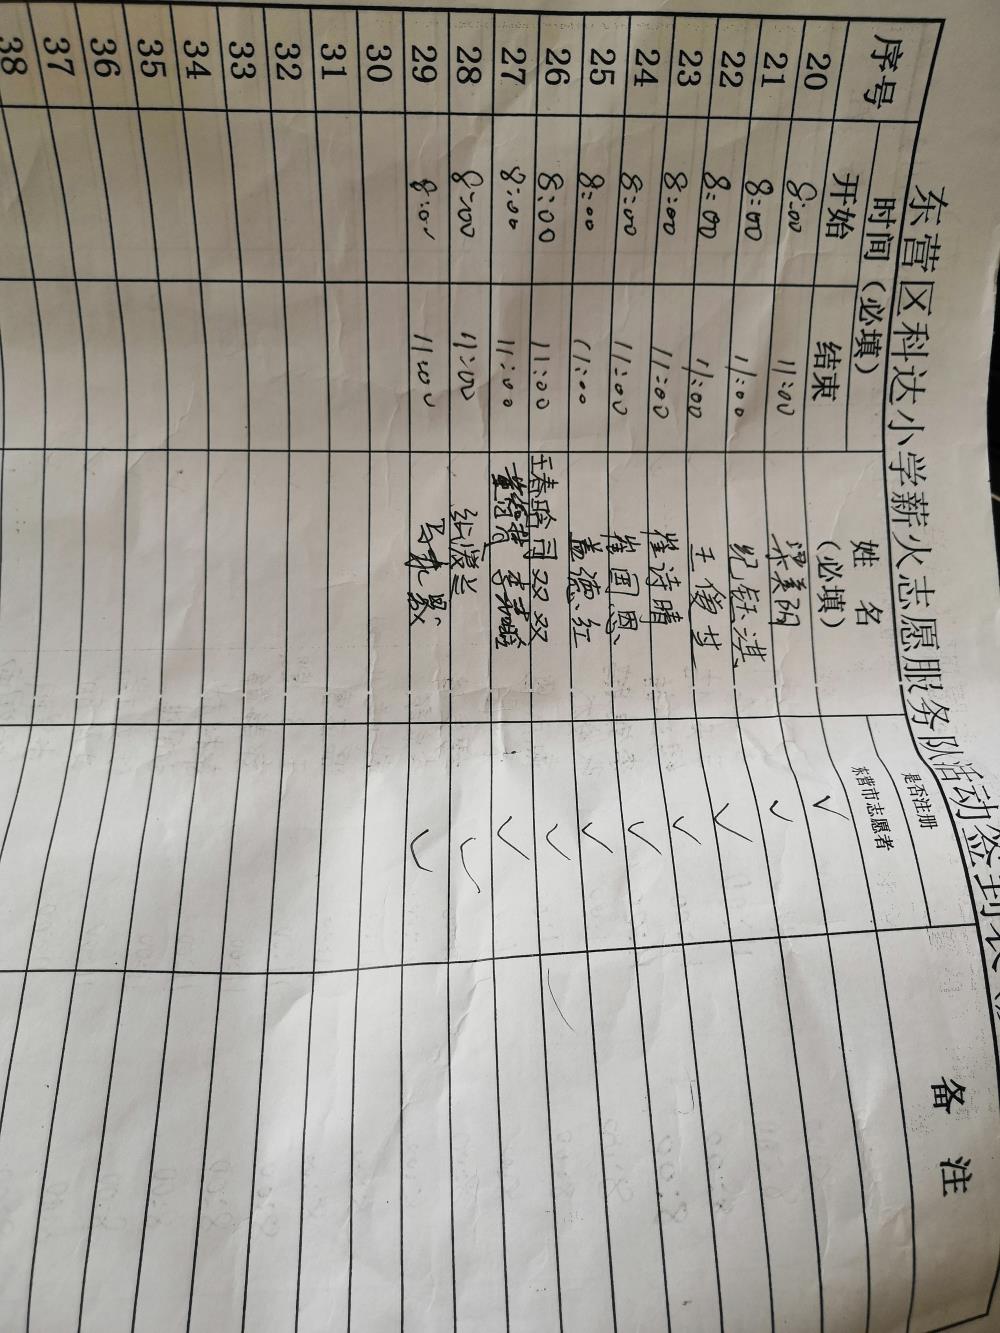 东营区科达小学薪火志愿服务队活动签到表
序号 时间(必填) 姓名(必填) 是否注册东营市志愿者 备注
开始 结束
20 8:00 11:00 梁美丽 ✓
21 8:00 11:00 纪钰淇 ✓
22 8:00 11:00 王俊 ✓
23 8:00 11:00 崔诗晴 ✓
24 8:00 11:00 崔国恩 ✓
25 8:00 11:00 盖德红 ✓
26 8:00 11:00 司双双 ✓
27 8:00 11:00 ✓
28 8:00 11:00 ✓
29 8:00 11:00 ✓
30
31
32
33
34
35
36
37
38